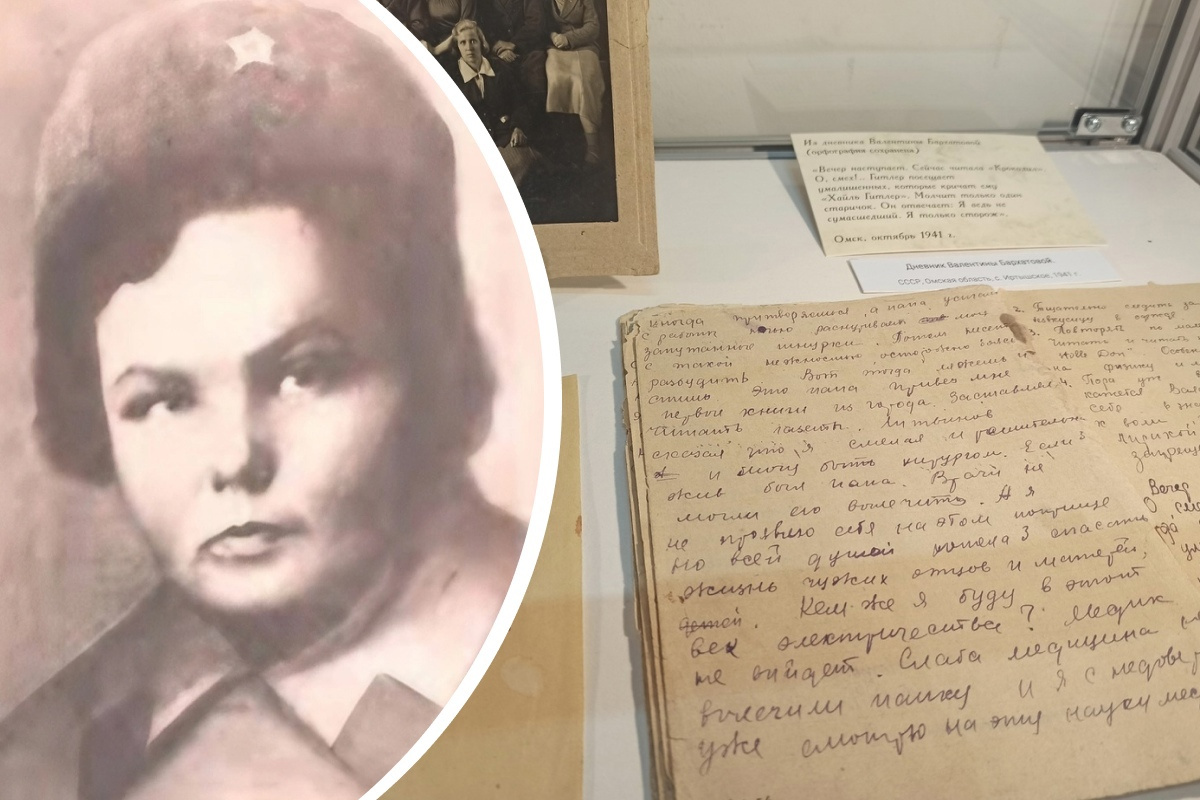 Из дневника Валентины Бархатовой
(орфография сохранена)
«Вечер наступает. Сейчас читала «Крокодил».
О, смех!.. Гитлер посещает
умалишенных, которые кричат ему
«Хайль Гитлер». Молчит только один
старичок. Он отвечает: Я ведь не
сумасшедший. Я только сторож».
Омск, октябрь 1941 г.
Дневник Валентины Бархатовой.
СССР, Омская область, с. Иртышское, 1941 г.
Иногда притворяешься, а папа, усталый
с работы, долго распутывает мои
запутанные шнурки. Потом несет
с такой нежностью осторожно боясь
разбудить. Вот тогда
папа привез мне
первые книги из города. Заставлял
читать газеты. Литвинов
сказал что я смелая и решительная
и могу быть хирургом. Если
жив был папа. Врачи не
могли его вылечить. А я
не проявлю себя на этом поприще
но всей душой хотела спасти
жизнь чужих отцов и матерей,
детей. Кем же я буду в этот
век электричества? Медик
не выйдет. Слаба медицина не
вылечили папку и я с недове
уже смотрю на эту науку
2. Тщательно следить за
3. Повторять по
читать и читать
на физику и
4. Пора уж
кажется
себя
к воли
лирикой
запрещ
Вечер
О, сме